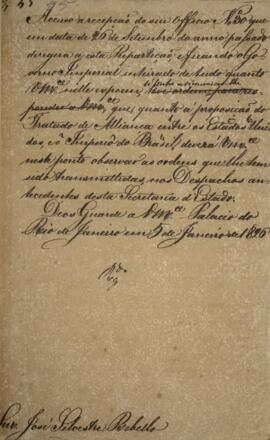 Accuso a recepção do seu Officio Nº 30 que
em data de 26 de Setembro do anno passado
dirigira a esta Repartição e ficando o Go-
verno Imperial inteirado de tudo quanto
Vmce nelle expoem,
que, quanto á proposição do
Tratado de Alliança entre os Estados Uni-
dos, e o Imperio do Brasil, deverá Vmce
neste ponto observar as ordens que lhe tem
sido transmittidas, nos Despachos an-
tecedentes desta Secretaria d'Estado.
Deos Guarde a Vmce Palacio do
Rio de Janeiro em 5 de Janeiro de 1826
Snr. José Silvestre Rebello